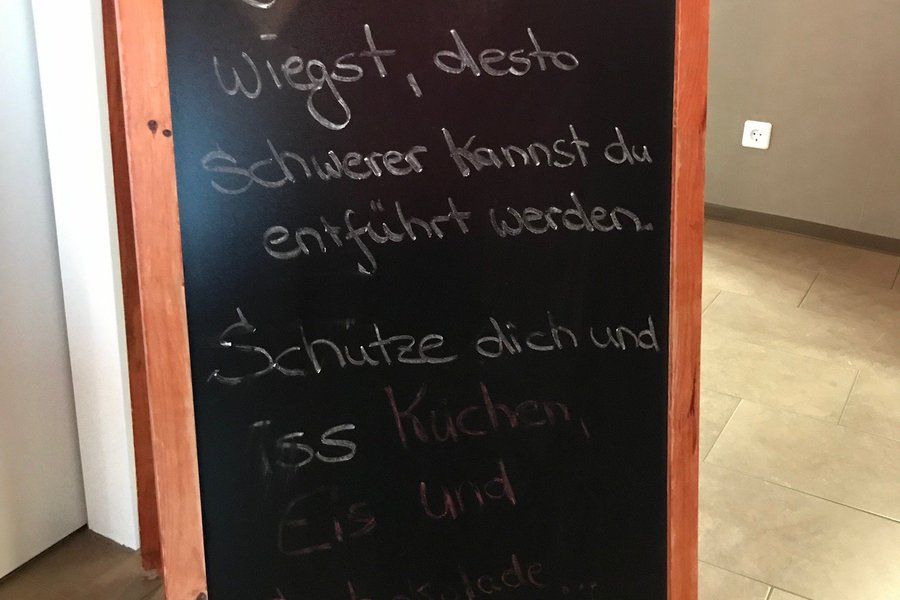 wiegst, desto
schwerer kannst du
entführt werden.
Schütze dich und
iss Kuchen,
Eis und